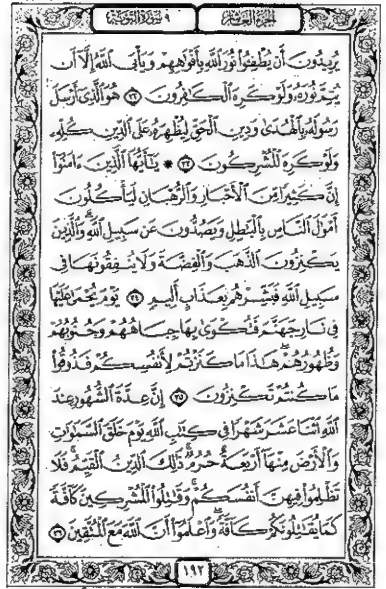 الجزء العاشر ٩ سورة التوبة
يُرِيدُونَ أَن يُطْفِـُٔوا۟ نُورَ ٱللَّهِ بِأَفْوَٰهِهِمْ وَيَأْبَى ٱللَّهُ إِلَّآ أَن
يُتِمَّ نُورَهُۥ وَلَوْ كَرِهَ ٱلْكَـٰفِرُونَ ٣٢ هُوَ ٱلَّذِىٓ أَرْسَلَ
رَسُولَهُۥ بِٱلْهُدَىٰ وَدِينِ ٱلْحَقِّ لِيُظْهِرَهُۥ عَلَى ٱلدِّينِ كُلِّهِۦ
وَلَوْ كَرِهَ ٱلْمُشْرِكُونَ ٣٣ ۞ يَـٰٓأَيُّهَا ٱلَّذِينَ ءَامَنُوٓا۟
إِنَّ كَثِيرًا مِّنَ ٱلْأَحْبَارِ وَٱلرُّهْبَانِ لَيَأْكُلُونَ
أَمْوَٰلَ ٱلنَّاسِ بِٱلْبَـٰطِلِ وَيَصُدُّونَ عَن سَبِيلِ ٱللَّهِ ۗ وَٱلَّذِينَ
يَكْنِزُونَ ٱلذَّهَبَ وَٱلْفِضَّةَ وَلَا يُنفِقُونَهَا فِى
سَبِيلِ ٱللَّهِ فَبَشِّرْهُم بِعَذَابٍ أَلِيمٍ ٣٤ يَوْمَ يُحْمَىٰ عَلَيْهَا
فِى نَارِ جَهَنَّمَ فَتُكْوَىٰ بِهَا جِبَاهُهُمْ وَجُنُوبُهُمْ
وَظُهُورُهُمْ ۖ هَـٰذَا مَا كَنَزْتُمْ لِأَنفُسِكُمْ فَذُوقُوا۟
مَا كُنتُمْ تَكْنِزُونَ ٣٥ إِنَّ عِدَّةَ ٱلشُّهُورِ عِندَ
ٱللَّهِ ٱثْنَا عَشَرَ شَهْرًا فِى كِتَـٰبِ ٱللَّهِ يَوْمَ خَلَقَ ٱلسَّمَـٰوَٰتِ
وَٱلْأَرْضَ مِنْهَآ أَرْبَعَةٌ حُرُمٌ ۚ ذَٰلِكَ ٱلدِّينُ ٱلْقَيِّمُ ۚ فَلَا
تَظْلِمُوا۟ فِيهِنَّ أَنفُسَكُمْ ۚ وَقَـٰتِلُوا۟ ٱلْمُشْرِكِينَ كَآفَّةً
كَمَا يُقَـٰتِلُونَكُمْ كَآفَّةً ۚ وَٱعْلَمُوٓا۟ أَنَّ ٱللَّهَ مَعَ ٱلْمُتَّقِينَ ٣٦
١٩٢